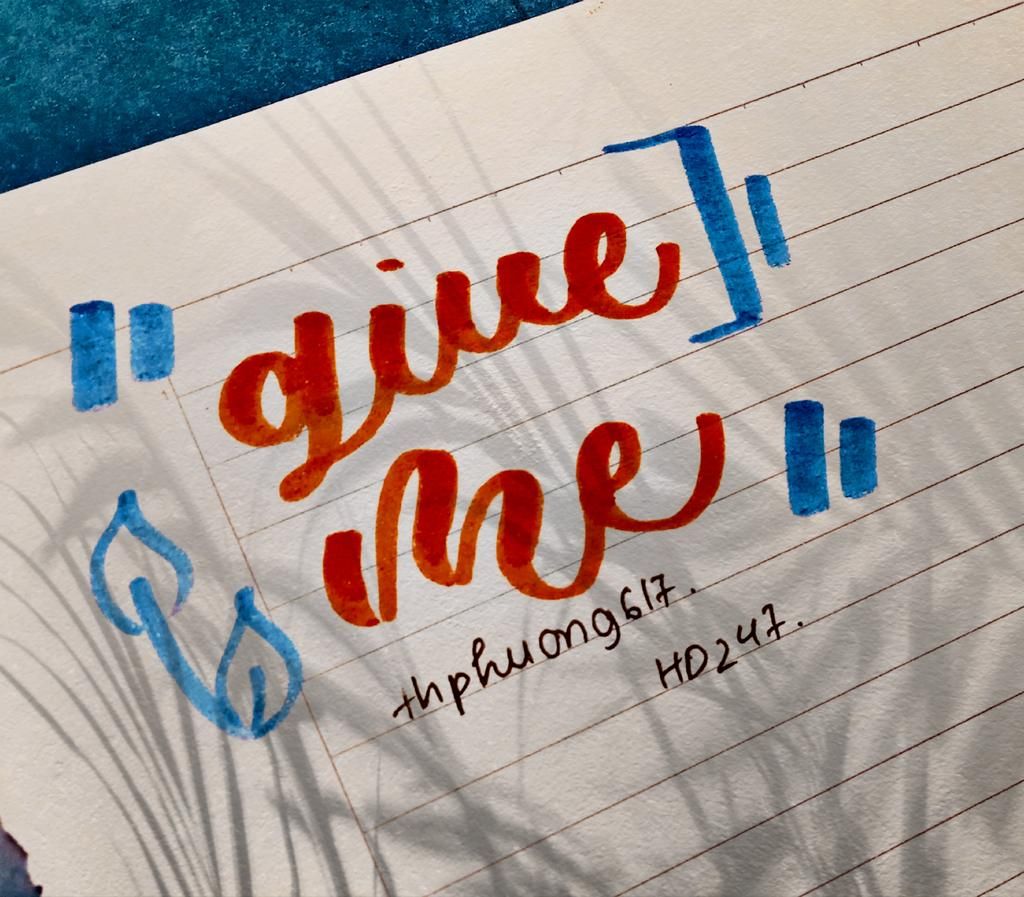 "give]"
me"
thphuong617.
HD247.